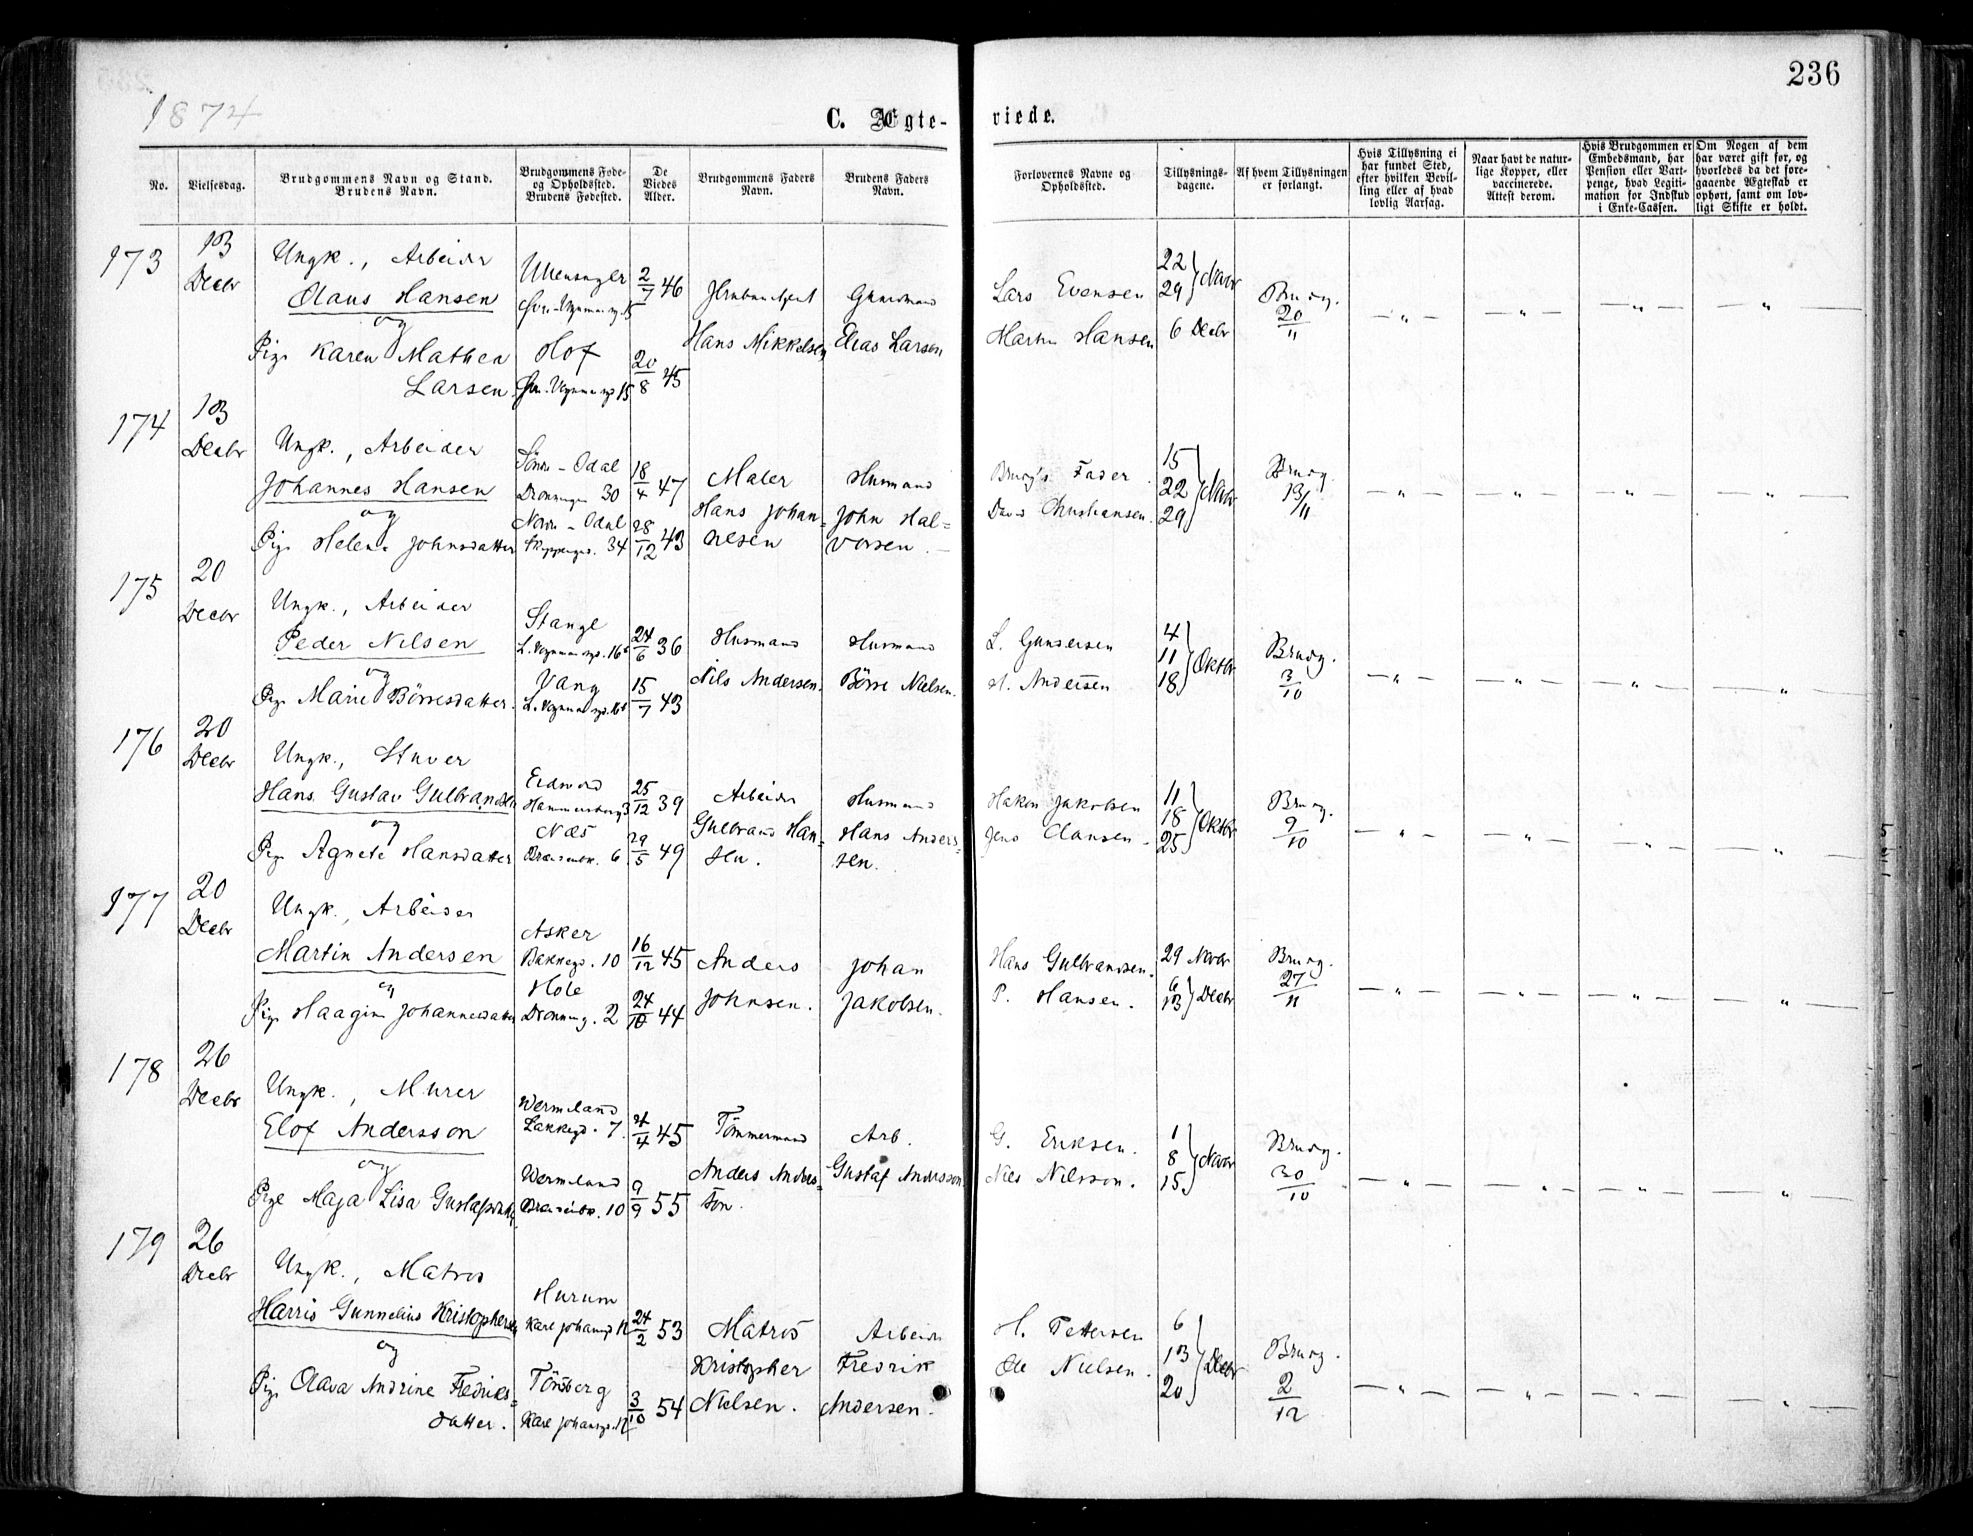 236
1874
C. Ægte- viede.
No.
Vielsesdag.
Brudgommens Navn og Stand.
Brudens Navn.
Brudgommens Føde-
og Opholdssted.
Brudens Fødested.
De
Viedes
Alder.
Brudgommens Faders
Navn.
Brudens Faders
Navn.
Forlovernes Navne og
Opholdssted.
Tillysnings-
dagene.
Af hvem Tillysningen
er forlangt.
Hvis Tillysning ei
har fundet Sted,
efter hvilken Bevil-
ling eller af hvad
lovlig Aarsag.
Naar havt de natur-
lige Kopper, eller
vaccinerede.
Attest derom.
Hvis Brudgommen er
Embedsmand, har
Pension eller Vart-
penge, hvad Legiti-
mation for Indskud
i Enke-Cassen.
Om Nogen af dem
har været gift før, og
hvorledes da det fore-
gaaende Ægteskab er
ophørt, samt om lov-
ligt Skifte er holdt.
173
13
Decbr
Ungk., Arbeider
Olaus Hansen
og
Pige Karen Mathea
Larsen
Ullensager
Hof
2/7 46
20/8 45
Hans Mikkelsen
Gaardmand
Elias Larsen
Lars Evensen
Martin Hansen
22
29 Novbr
6 Decbr
Brudg.
20/11
174
13
Decbr
Ungk., Arbeider
Johannes Hansen
og
Pige Helene Johnsdatter
Søndre-Odal
Dronningsg 30
Nordre-Odal
34
18/4 47
28/12 43
Maler
Hans Johan-
nesen
Husmand
John Hal-
vorsen.
Brudg's Fader
Christiansen.
15
22
29 Novbr
Brudg.
13/11
175
20
Decbr
Ungk., Arbeider
Peder Nilsen
og
Pige Marie Børresdatter.
Stange
Vang
24/6 36
15/7 43
Husmand
Nils Andersen.
Husmand
Børre Nielsen.
L. Gundersen
A. Andersen
4
11
18 Oktbr
Brudg.
3/10
176
20
Decbr
Ungk., Stuver
Hans Gustav Gulbrandsen
og
Pige Agnete Hansdatter
Eidsvold
Hammersborg 3
Næs
6
25/12 39
29/5 49
Arbeider
Gulbrand Han-
sen.
Husmand
Hans Anders-
sen.
Hakon Jakobsen
Jens Clausen.
11
18
25 Oktbr
Brudg.
9/10
177
20
Decbr
Ungk., Arbeider
Martin Andersen
og
Pige Haagine Johannesdatter
Asker
Bakkegd. 10
Hole
Dronning. 2
16/12 45
24/10 44
Anders
Johnsen.
Johan
Jakobsen.
Hans Gulbrandsen.
P. Hansen.
29 Novbr
6
13 Decbr
Brudg.
27/11
178
26
Decbr
Ungk., Murer
Elof Andersson
og
Pige Maja Lisa Gustafsdatter
Wermland
Lakkegd. 7.
Wermland
10
4/4 45
9/9 55
Tømmermand
Anders Anders-
son.
Arb.
Gustaf Andersson
G. Eriksen.
Nils Nilsson.
1
8
15 Novbr
Brudg.
30/10
179
26
Decbr
Ungk., Matros
Harris Gunnelius Kristophersen
og
Pige Olava Andrine Fredriks-
datter.
Hurum
Karl Johansgd 12
Tønsberg
Karl Johansgd. 12
24/2 53
3/10 54
Matros
Kristopher
Nielsen.
Arbeider
Fredrik
Andersen.
H. Pettersen
Ole Nielsen.
6
13
20 Decbr
Brudg.
2/12